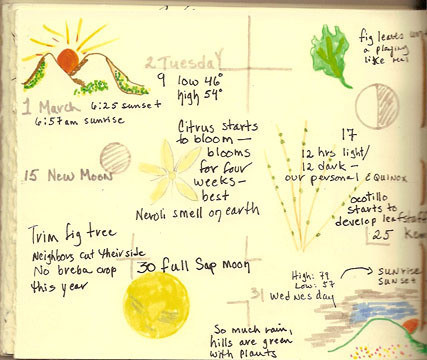 2 Tuesday
9 low 46°
high 54°
fig leaves
a playing
like
1 March 6:25 sunset
6:57 am sunrise
Citrus starts
to bloom —
blooms
for four
weeks —
best
Neroli smell on earth
17
12 hrs light/
12 dark —
our personal EQUINOX
15 New Moon
ocotillo
starts to
develop
25
Trim fig tree
Neighbors cut their side
No breba crop
this year
30 full Sap moon
High: 79
Low: 57
31
Wednesday
sunrise
sunset
So much rain,
hills are green
with plants